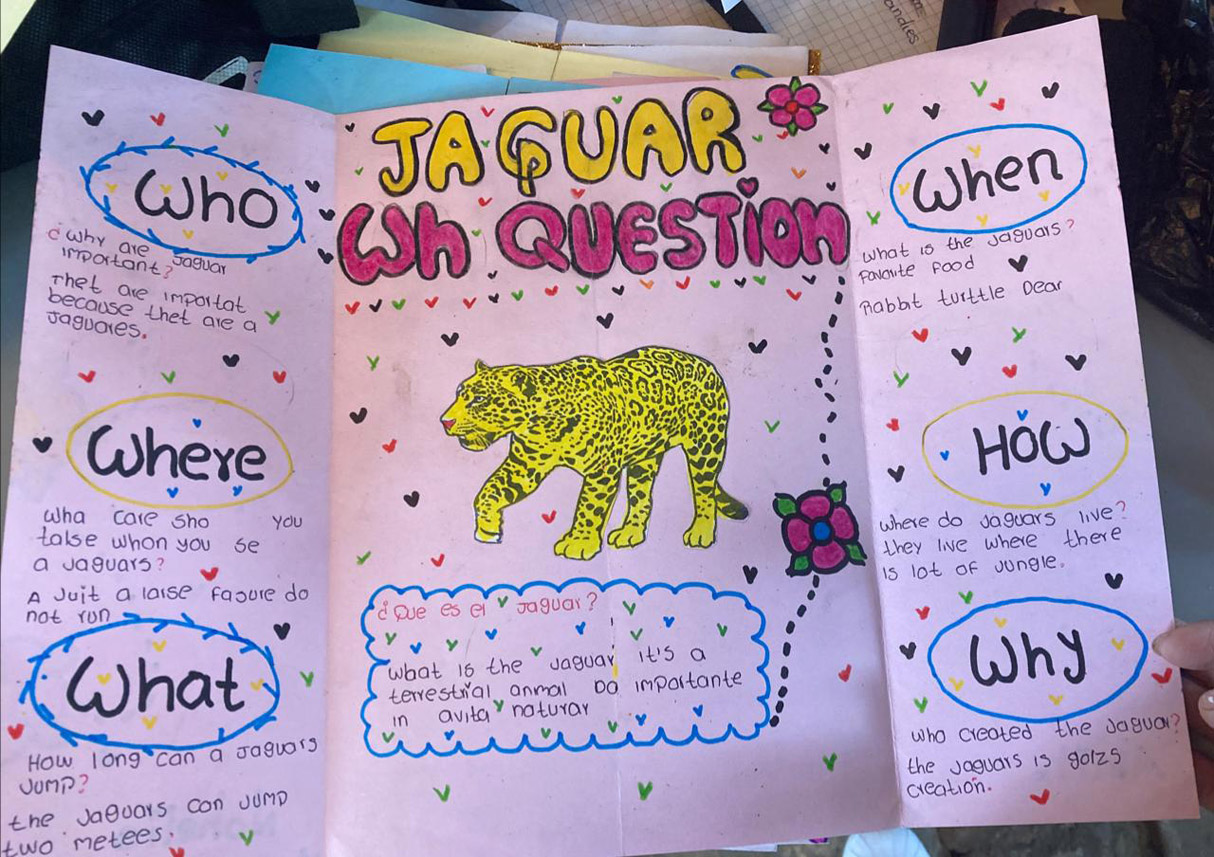 JAGUAR
Wh QUESTION
Who
¿Why are Jaguar
important?
Thet are importat
because thet are a
Jaguares.
Where
Wha care sho you
talse whon you se
a Jaguars?
A Juit a larse fasure do
not run
What
How long can a Jaguars
Jump?
the Jaguars can Jump
two metees.
¿Que es el Jaguar?
What is the Jaguar it's a
terrestrial anmal Do importante
in avita naturar
When
What is the Jaguars?
favorite food
Rabbit turttle Dear
How
Where do Jaguars live?
they live where there
is lot of Jungle.
Why
who created the Jaguar?
the Jaguars is golzs
creation.
andles